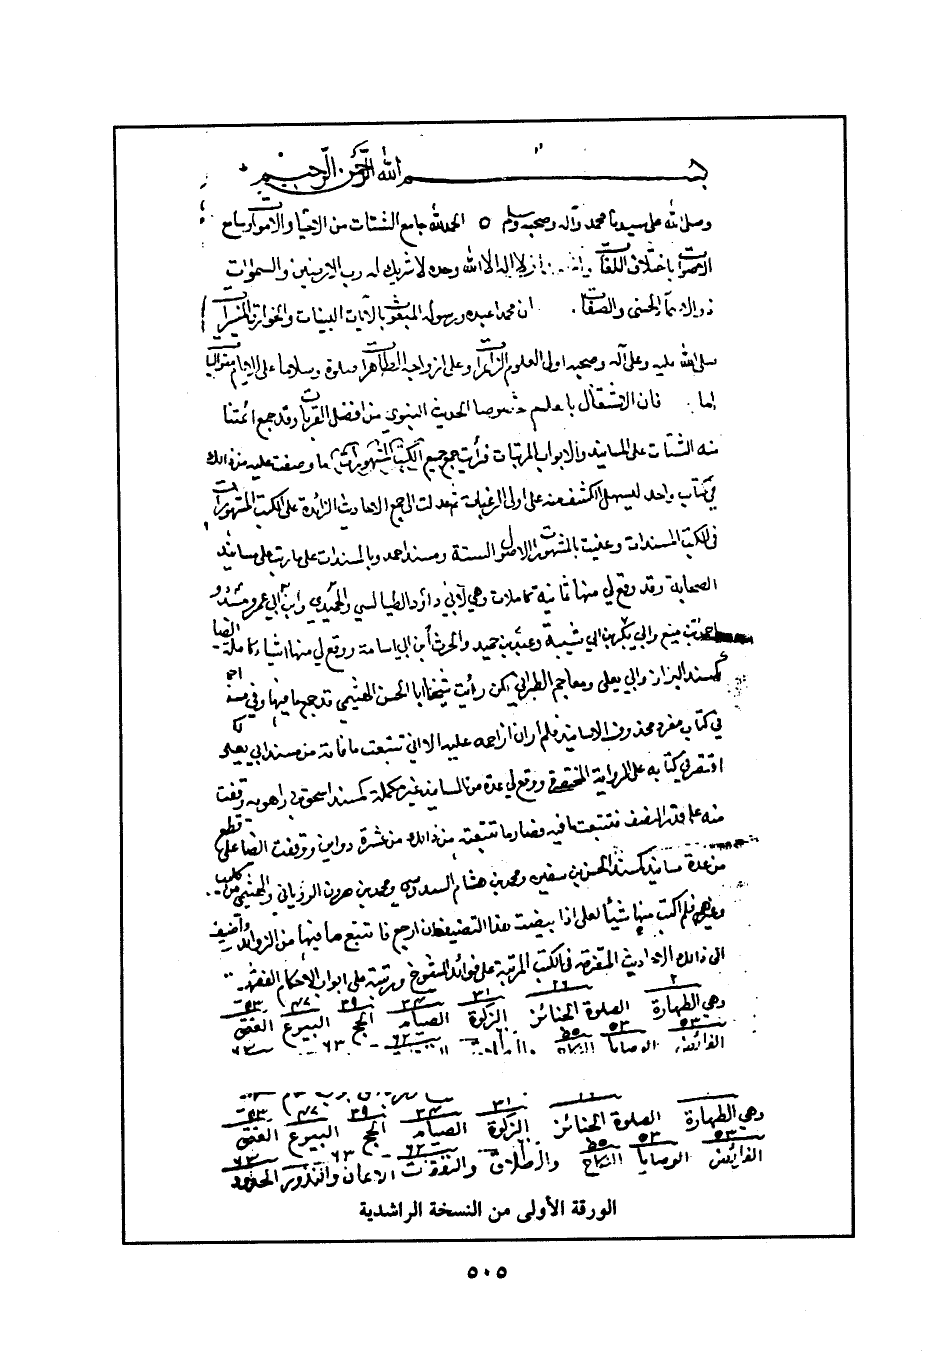 بسم الله الرحمن الرحيم
وصلى الله على سيدنا محمد وآله وصحبه وسلم ٥ الحمدلله جامع الشتات من الاحيا والاموات وسامع
الاصوات باختلاف اللغات ... لا اله الا الله وحده لا شريك له رب الارضين والسموات
ذو الاسمآ الحسنى والصفات ان محمدا عبده ورسوله المبعوث بالآيات البينات والخوارق النيرات
صلى الله عليه وعلى آله وصحبه اولى العلوم الزاهرات وعلى ازواجه الطاهرات صلوة وسلاما على الايام متواليا
اما فان الاشتغال بالعلم خصوصا الحديث النبوي من افضل القربات وقد جمع ائمتنا
منه الشتات على المسانيد والابواب المرتبات فرأيت جمع جميع الكتب المشهورات ما وصفت عليه من ذالك
في كتاب واحد ليسهل الكشف منه على اولى الرغبات ثم عدلت الى جمع الاحاديث الزائدة على الكتب المشهورات
في الكتب المسندات وعنيت بالمشهورات الاصول الستة ومسند احمد وبالمسندات على ما رتب على مسانيد
الصحابة وقد وقع لي منها ثمانية كاملات وهي لابي داؤد الطيالسي والحميدي وابن ابي عمر ومسدد و
احمد بن منيع وابي بكر بن ابي شيبة وعبد بن حميد والحرث ابن ابي اسامة ووقع لي منها اشياء كاملة ايضا
كمسند البزار وابي يعلى ومعاجم الطبراني لكن رأيت شيخنا ابا الحسن الهيثمي قد جمع ما فيها وفي مسند احمد
في كتاب مفرد محذوف الاسانيد فلم ار ان ازاحمه عليه الا اني تتبعت ما فاته من مسند ابي يعلى
اقتصر في كتابه على الرواية المختصرة ووقع لي عدة من المسانيد غير مكملة كمسند اسحق بن راهويه وقفت
منه على قدر النصف فتتبعت ما فيه فصار ما تتبعته من ذالك من عشرة دواوين ووقفت ايضا على قطع
من عدة مسانيد كمسند الحسن بن سفين ومحمد بن هشام السدوسي ومحمد بن هرون الروياني والهيثم بن كليب
وغيرها فلم اكتب منها شيئا لعلى اذا بيضت هذا التصنيف ان ارجع فاتتبع ما فيها من الزوائد واضيف
الى ذالك الاحاديث المتفرقة في الكتب المرتبة على فوائد الشيوخ ورتبته على ابواب الاحكام الفقهية
٢ ٢٦ ٣١ ٣٤ ٣٩ ٤٧ ٥٣
وهي الطهارة الصلوة الجنائز الزكوة الصيام الحج البيوع العتق
٥٣ ٥٣ ٥٥ ٦٢ ٦٣ ٦٣
الفرائض الوصايا النكاح
٢٦ ٣١ ٣٤ ٣٩ ٤٧ ٥٣
وهي الطهارة الصلوة الجنائز الزكوة الصيام الحج البيوع العتق
٥٣ ٥٣ ٥٥ ٦٢ ٦٣ ٦٣
الفرائض الوصايا النكاح والطلاق والنفقات الايمان والنذور الحدود
الورقة الأولى من النسخة الراشدية
٥٠٥